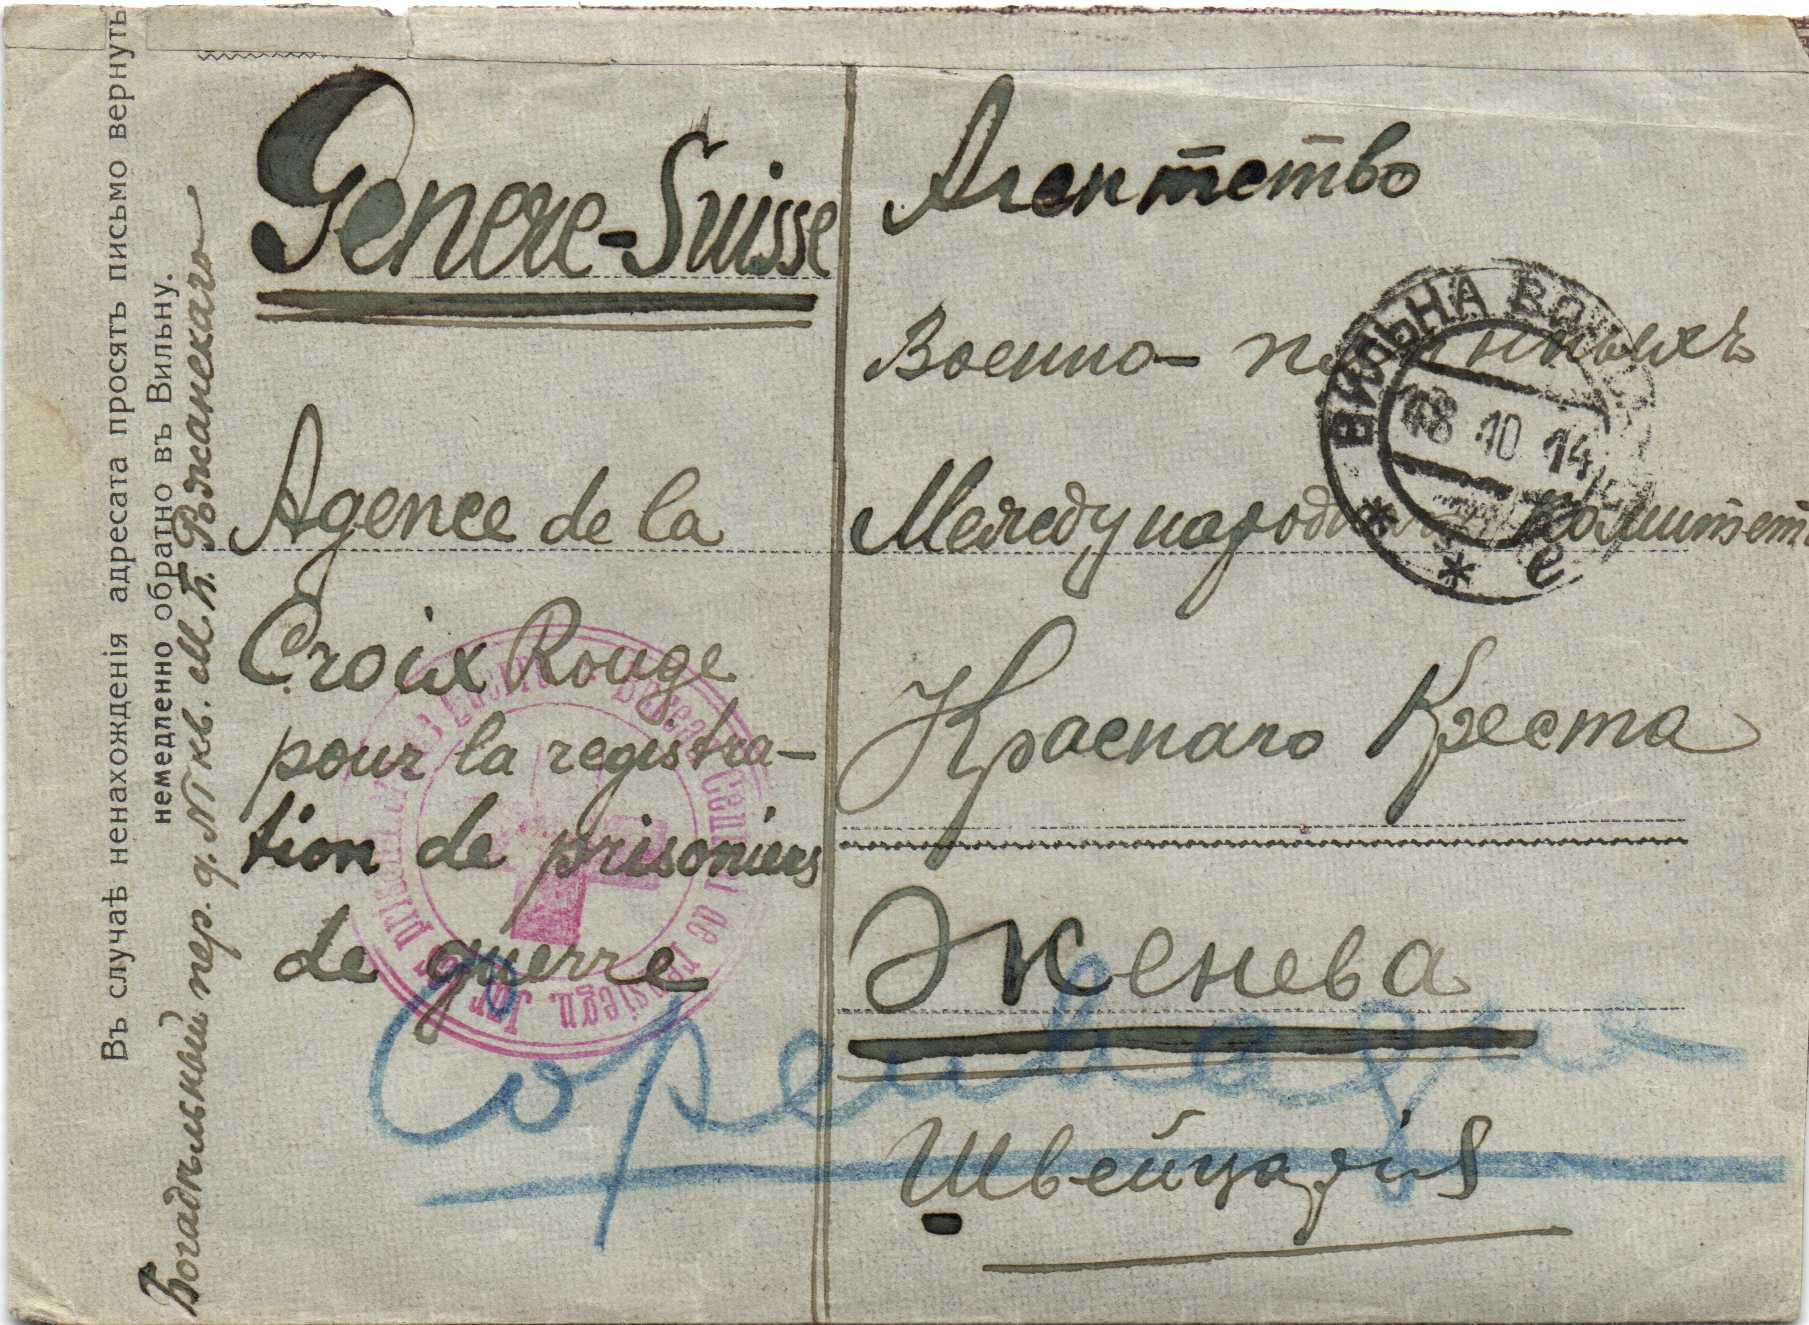 Въ случаѣ ненахожденія адресата просятъ письмо вернуть
немедленно обратно въ Вильну.
Богадѣльный пер. д. №1 кв. М. Б. Рожанскаго
Genève-Suisse
Agence de la
Croix Rouge
pour la registra-
tion de prisoniers
de guerre
Агентство
Военно-плѣнныхъ
Международн комитет
Краснаго Креста
Женева
Швейцарія
ВИЛЬНА ВОКЗ
18 10 14
е
Bureau Central de
Copenhague